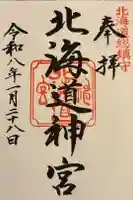 北海道総鎮守
奉拝
北海道神宮
令和八年一月二十八日